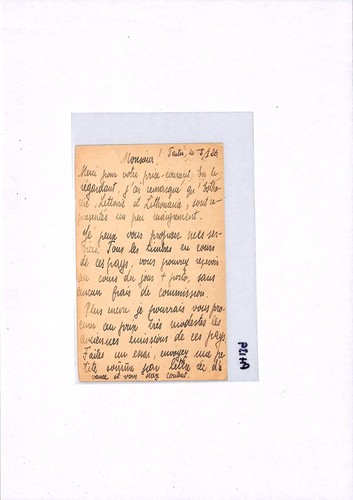 Monsieur! Tartu, le
Merci pour votre prix-courant. En le
regardant, j'ai remarqué qu'Estho-
nie, Lettonie et Lithuanie, sont re-
présentés un peu maigrement.
Je peux vous proposer mes ser-
vices. Tous les timbres en cours
de ces pays, vous pourrez recevoir
au cours du jour + porto, sans
aucun frais de commission.
Plus encore je pourrais vous pro-
curer au prix très modestes les
anciennes émissions de ces pays
Faites un essai, envoyez une pe-
tite somme par lettre rec. d'a-
vance et vous serez content.
P214A